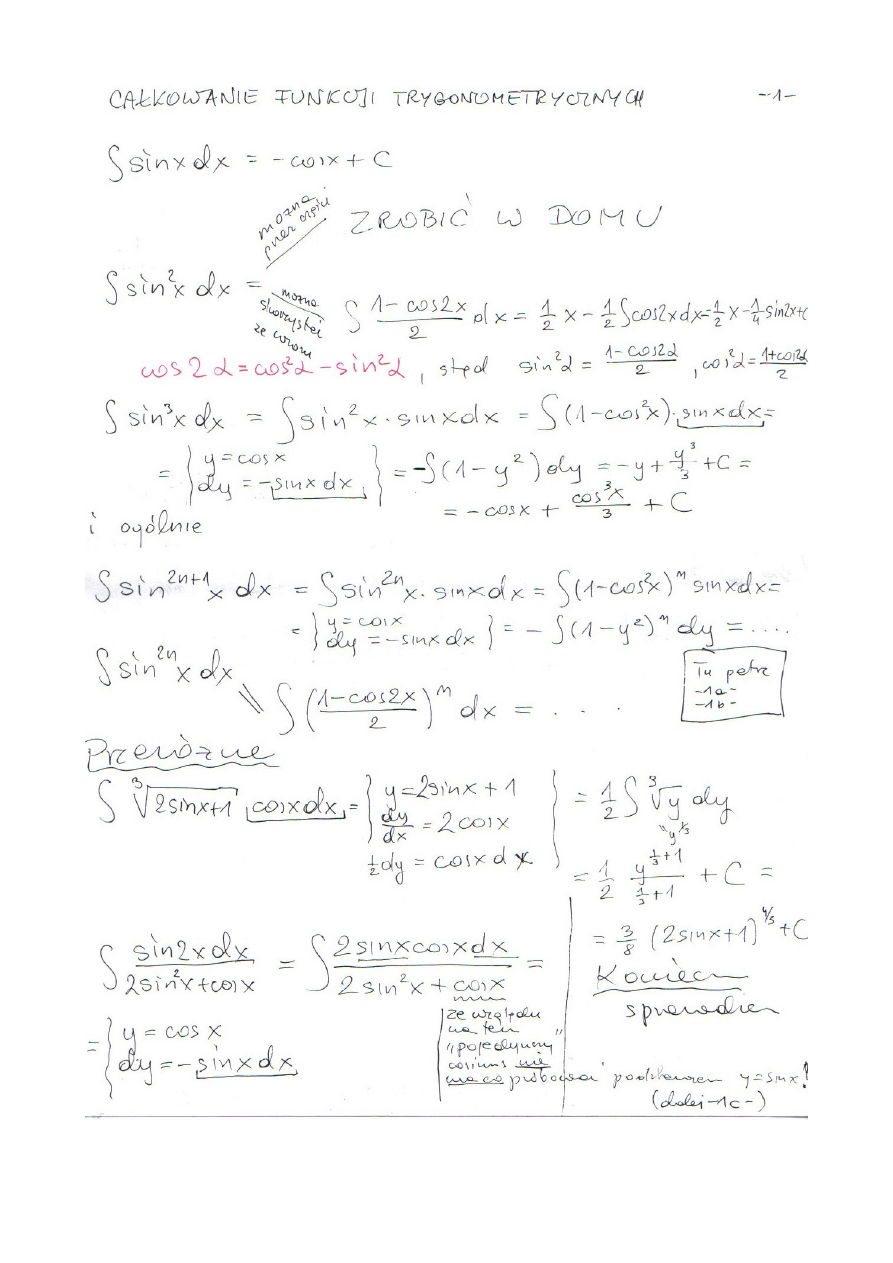 CAŁKOWANIE FUNKCJI TRYGONOMETRYCZNYCH -1-
∫ sinx dx = - cosx + C
można przez części
ZROBIĆ W DOMU
∫ sin²x dx =
można skorzystać ze wzoru
∫ (1 - cos2x)/2 dx = 1/2 x - 1/2 ∫cos2xdx = 1/2 x - 1/4 sin2x+C
cos 2α = cos²α - sin²α, stąd sin²α = (1-cos2α)/2, cos²α = (1+cos2α)/2
∫ sin³x dx = ∫ sin²x · sinxdx = ∫(1-cos²x)·sinxdx =
= { y = cosx
dy = -sinx dx } = -∫(1-y²)dy = -y + y³/3 + C =
= - cosx + cos³x/3 + C
i ogólnie
∫ sin²ⁿ⁺¹x dx = ∫ sin²ⁿx · sinxdx = ∫(1-cos²x)ⁿ sinxdx =
= { y = cosx
dy = -sinx dx } = - ∫(1-y²)ⁿ dy = ....
∫ sin²ⁿx dx
Tu patrz
-1a-
-1b-
= ∫ ((1-cos2x)/2)ⁿ dx = . . . .
Przeróżne
∫ ³√(2sinx+1) cosxdx = { y = 2sinx + 1
dy/dx = 2cosx
1/2 dy = cosx dx } = 1/2 ∫ ³√y dy
= y^(1/3)
= 1/2 y^(1/3+1)/(1/3+1) + C =
= 3/8 (2sinx+1)^(4/3) + C
Koniecznie
sprawdzen
∫ sin2x dx/(2sin²x+cosx) = ∫ 2sinxcosxdx/(2sin²x + cosx) =
= { y = cos x
dy = -sinx dx
ze względu
na ten
"pojedynczy"
cosinus nie
ma co próbować podstawien y=sinx!
(dalej -1c-)